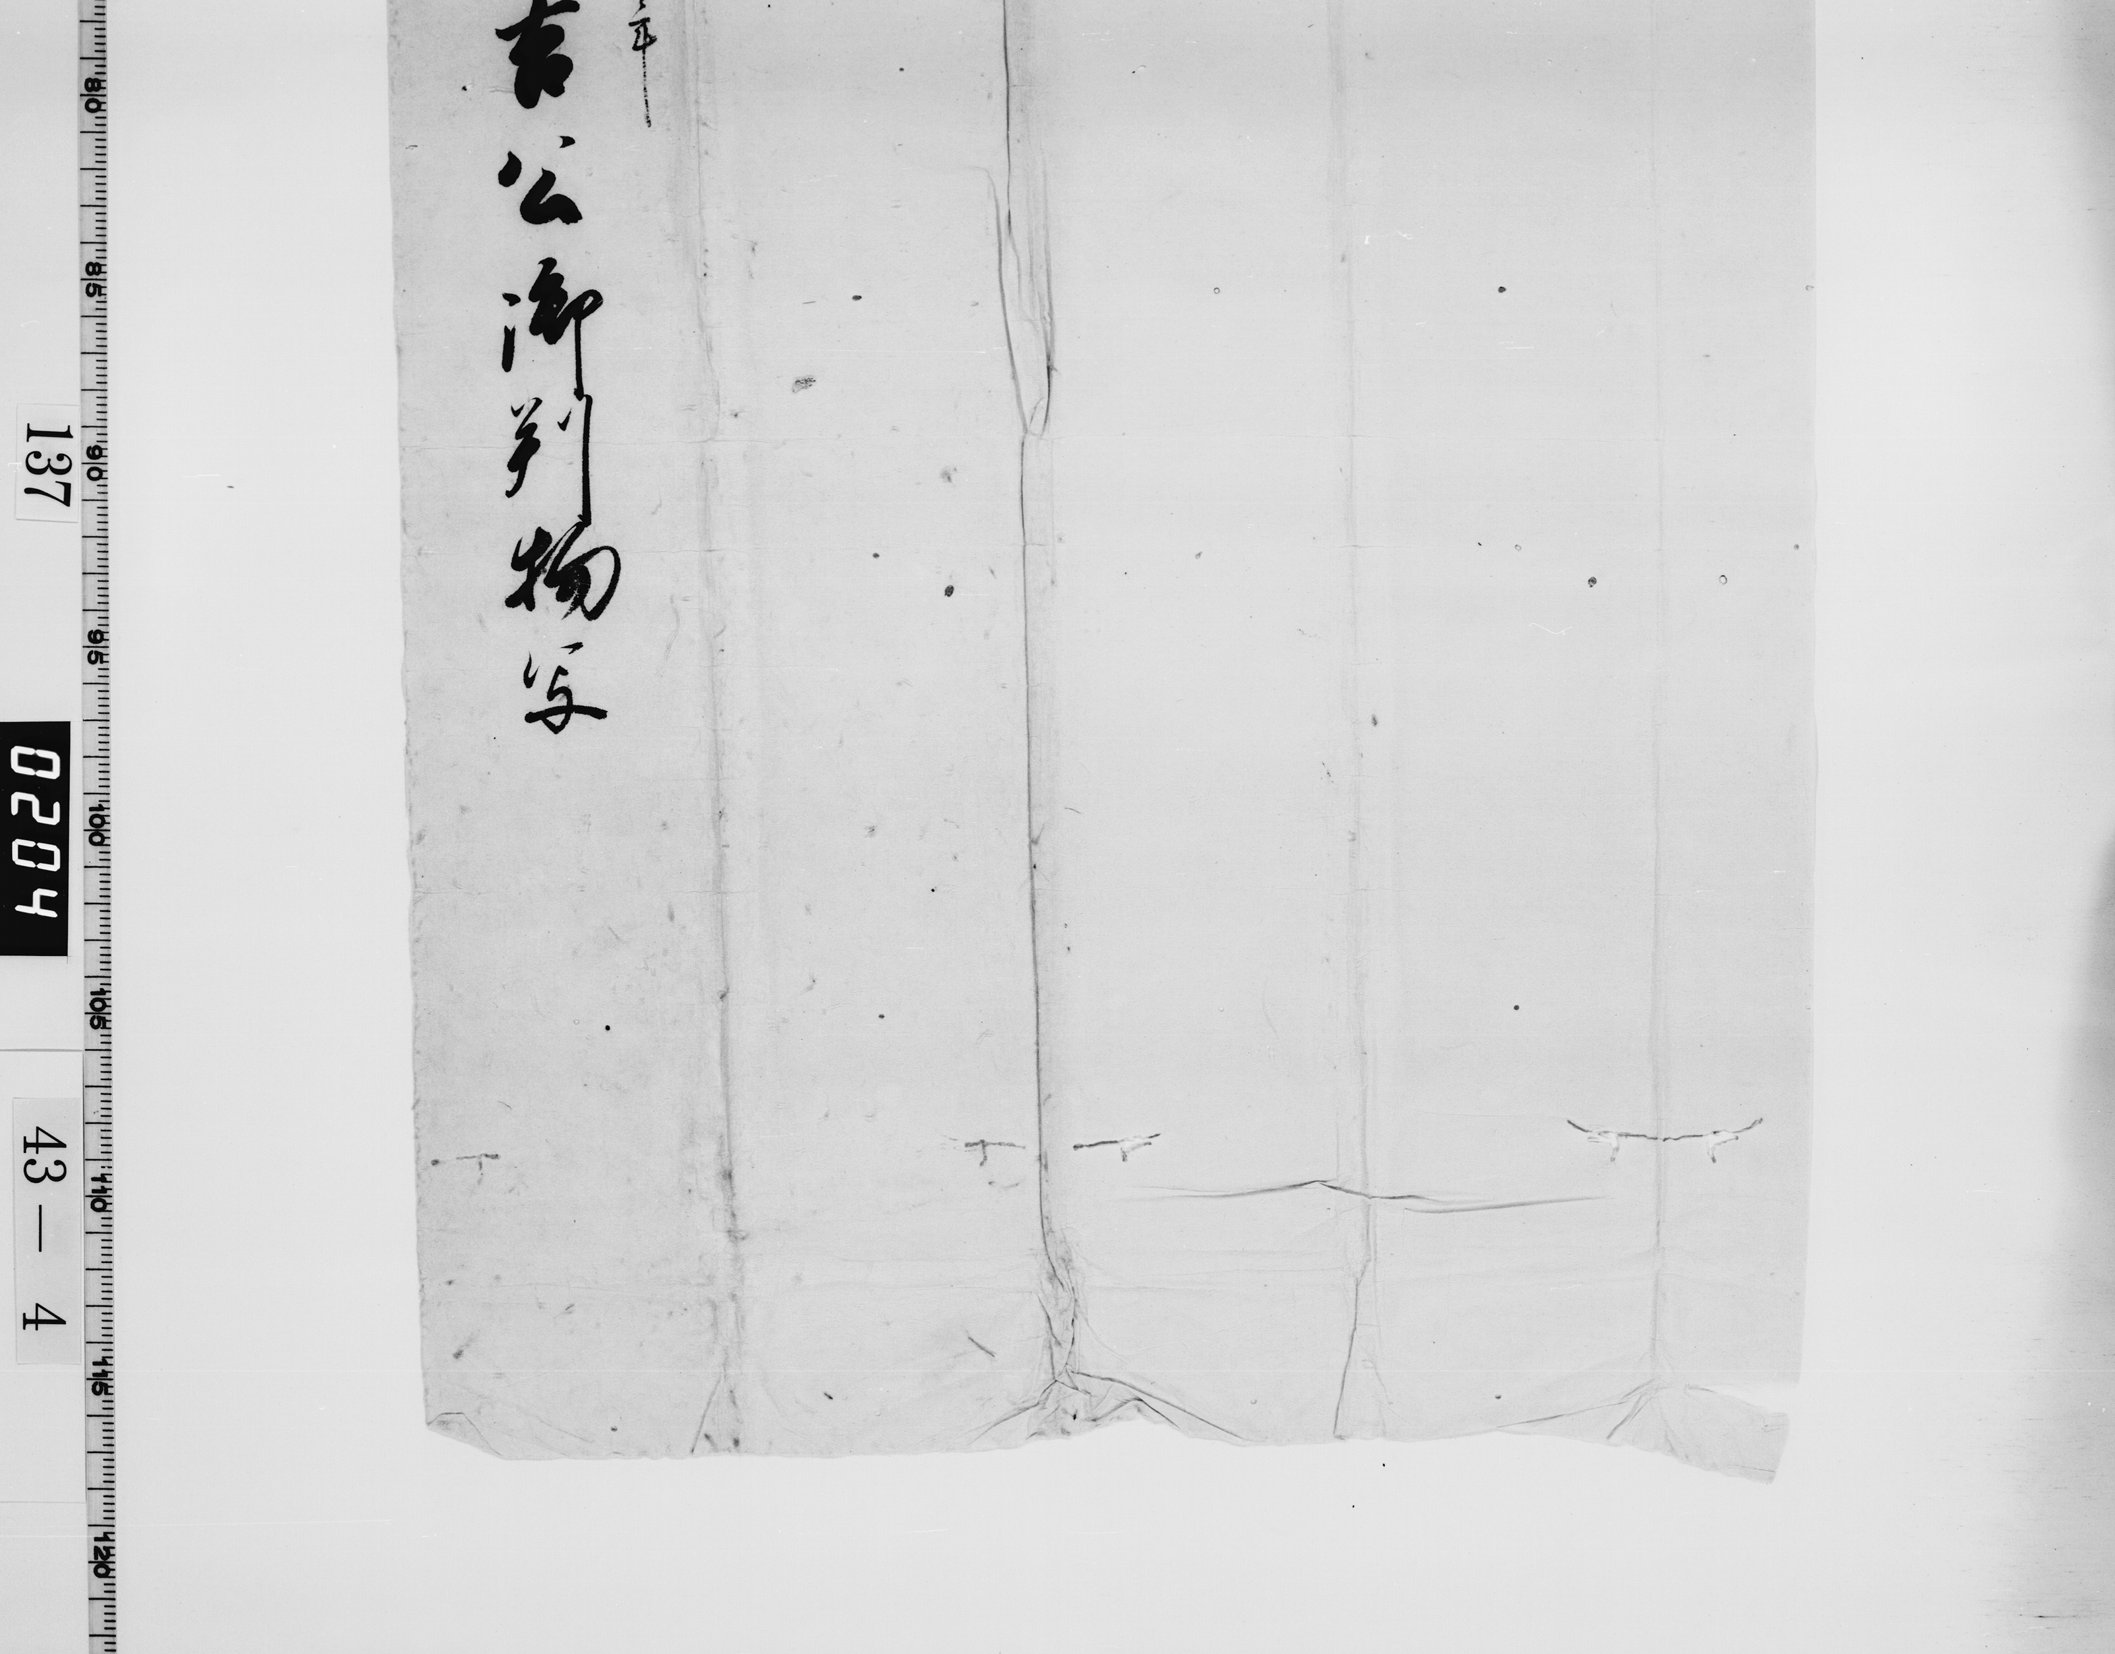 年
吉公御判物写
137
0204
43 — 4
80
85
90
95
100
105
110
115
120